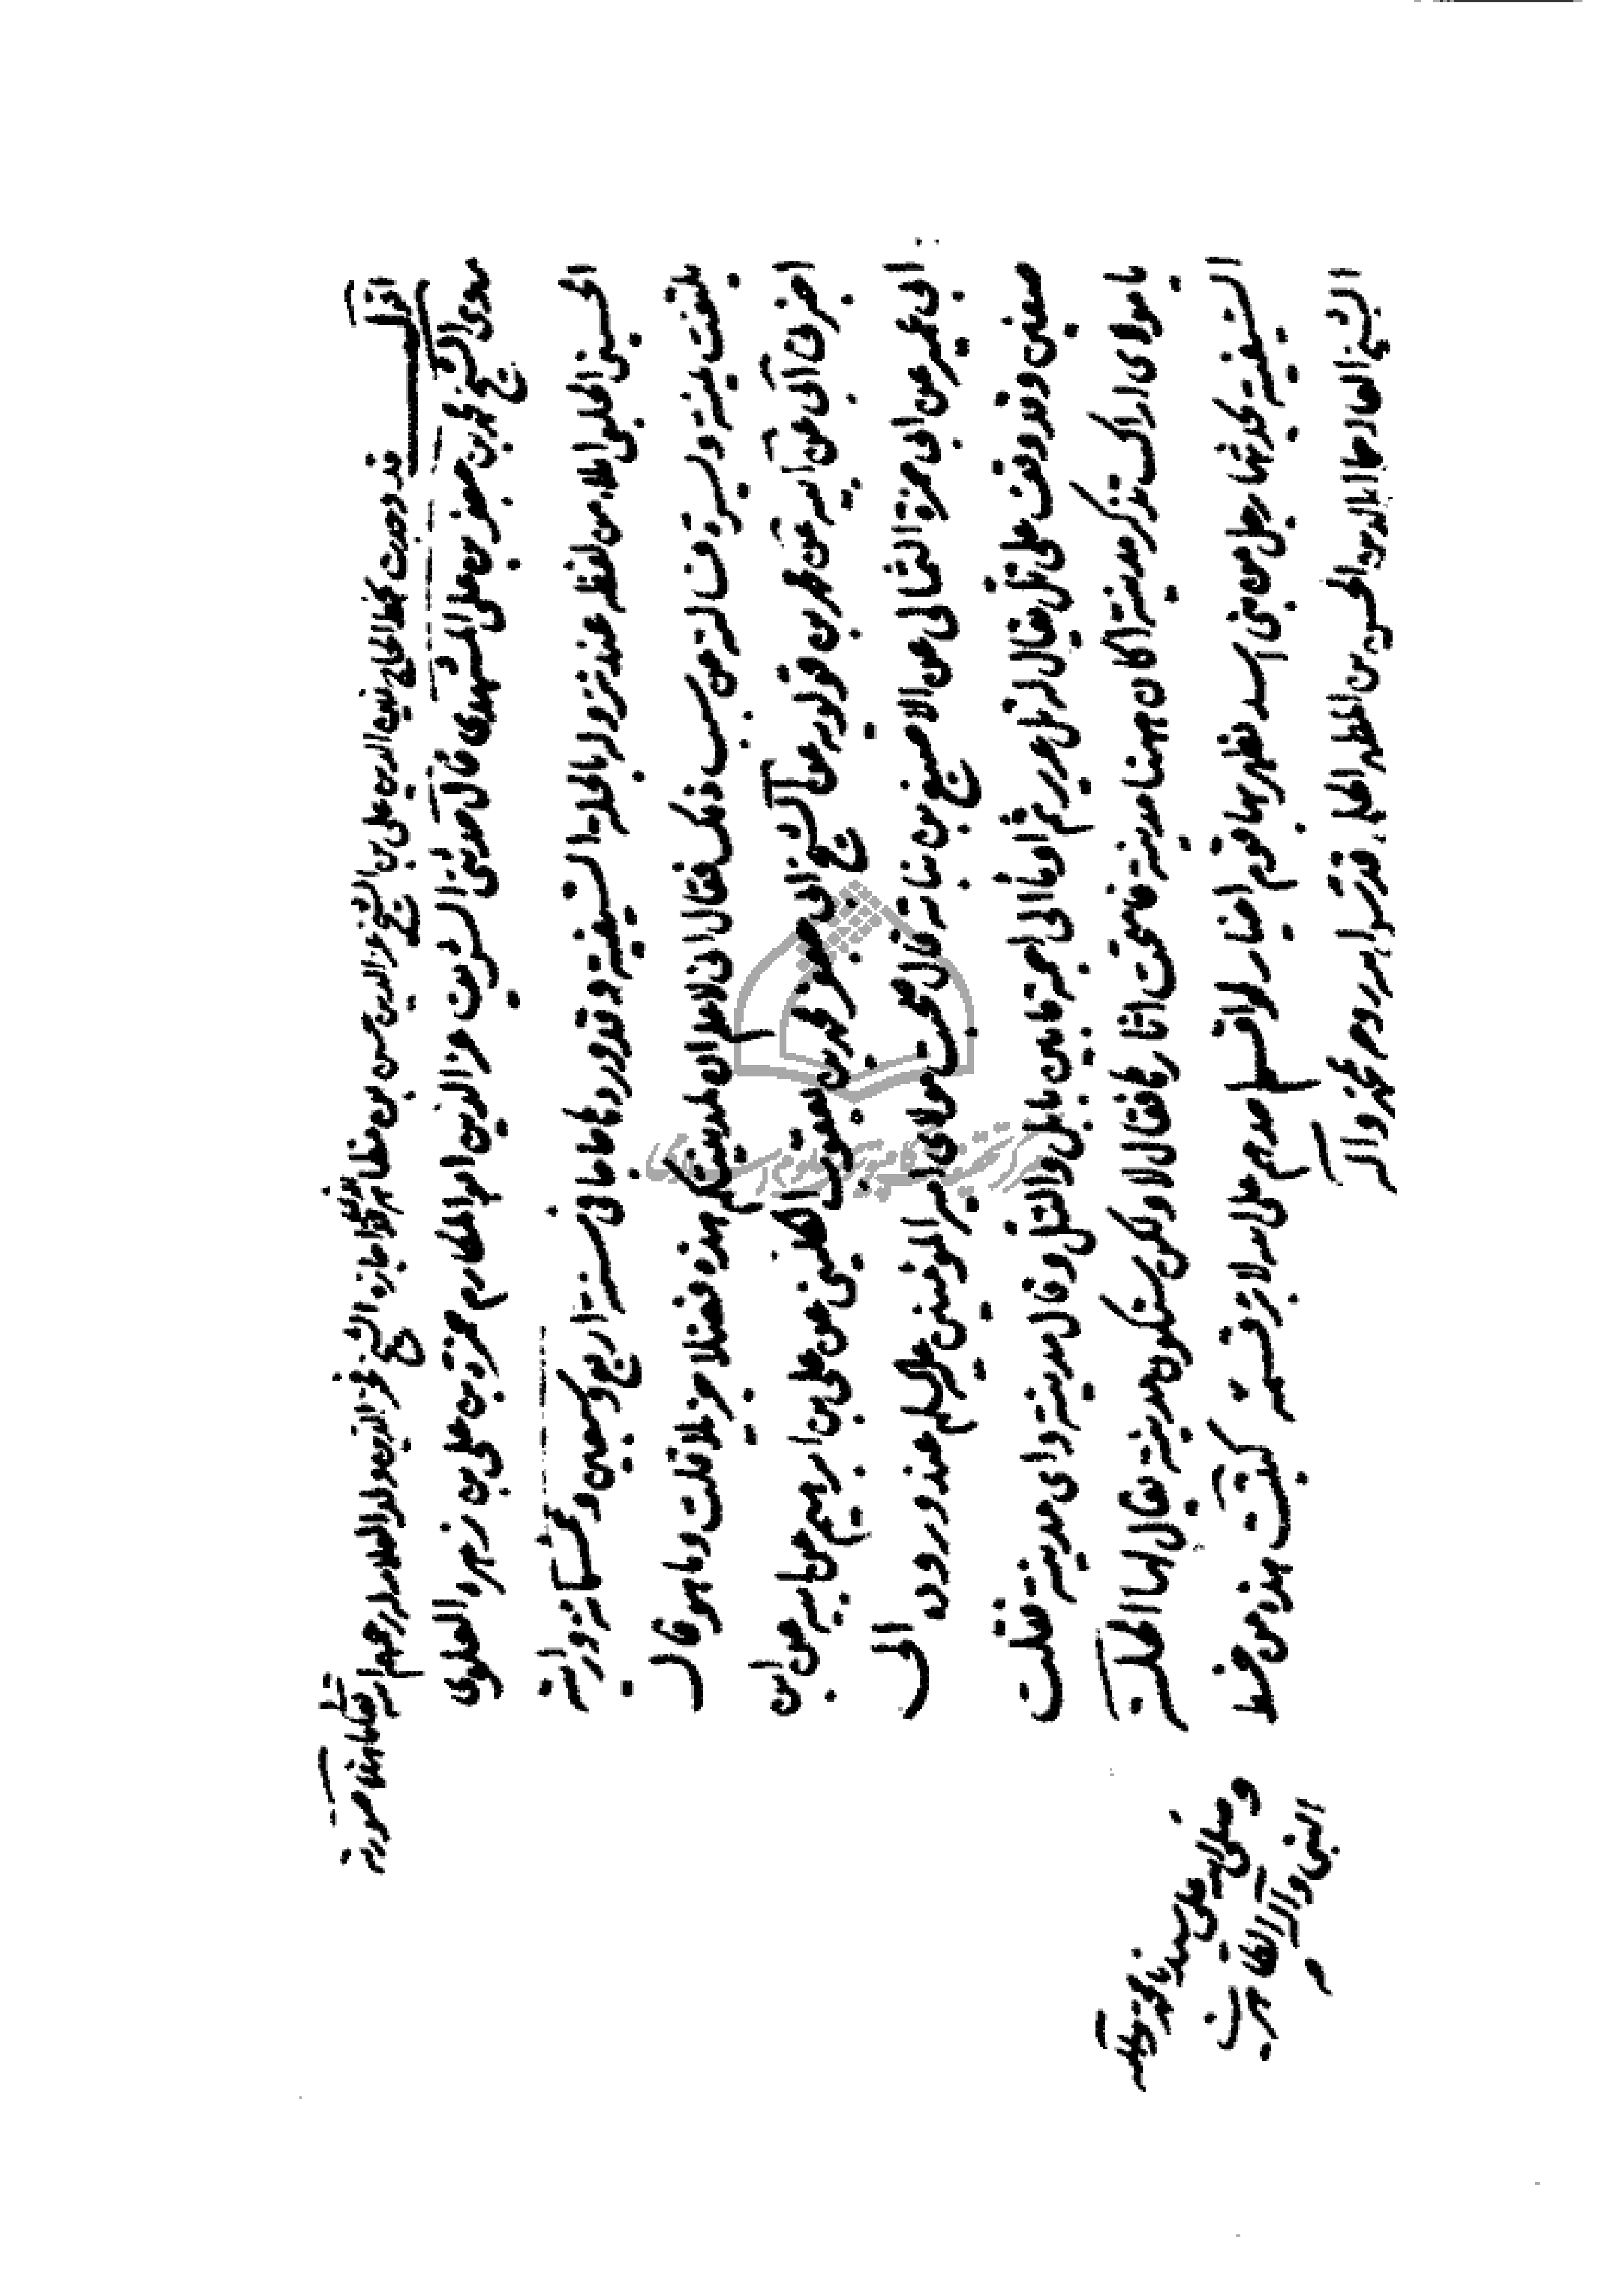 اقول قد وجدت بخط الحاج زين الدين علي بن الشيخ عز الدين حسن بن مظاهر اجازه الشيخ فخر الدين ولد العلامه له رحمهم الله تعالى ما هذا صورته
روى الشيخ محمد بن جعفر بن علي المشهدى قال حدثنى الشريف عز الدين ابو المكارم حمزة بن علي بن زهره العلوى
الحسينى الحلبى املاء من لفظه عند نزوله بالحلة السيفية وقد وردها حاجا فى سنة اربع وسبعين وخمسمائة ورايته
يلتفت يمنة ويسرة فسالته عن سبب ذلك فقال انى لاعلم ان لمدينتكم هذه فضلا جزيلا قلت وما هو قال
اخبرنى ابى عن ابيه عن محمد بن قولويه عن الشيخ ابى جعفر محمد بن يعقوب الكلينى عن على بن ابرهيم عن ابيه عن ابن
ابى عمير عن ابى حمزة الثمالى عن الاصبغ بن نباته قال صحبت مولاى امير المؤمنين عليه السلم عند وروده الى
صفين وقد وقف على تل يقال له تل عرير ثم اومأ الى اجمة ما بين بابل والتل وقال مدينة واى مدينة فقلت
يا مولاى اراك تذكر مدينة اكان ههنا مدينة فامحت اثارها فقال لا ولكن ستكون مدينة يقال لها الحلة
السيفية يحدثها رجل من بنى اسد يظهر بها قوم اخيار لو اقسم احدهم على الله لابر قسمه كتبت هذه من خط
الشيخ العاد جمال الدين الحسن بن المطهر الحلى قدس الله روحه بمحمد واله
وصلى الله على سيدنا محمد واله
النبى واله الطاهرين